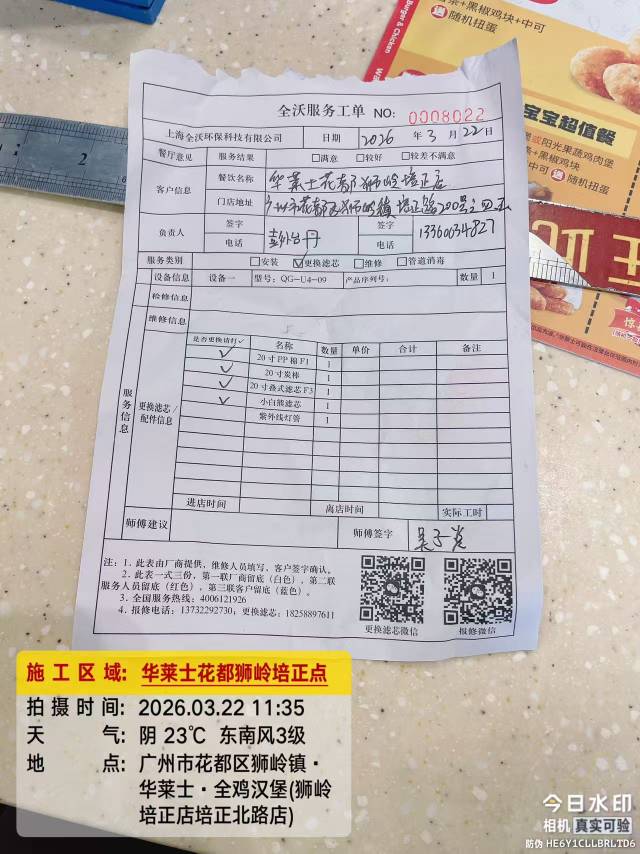 条+黑椒鸡块+中可
送 随机扭蛋
Burger & Chicken
宝宝超值餐
堡或阳光果蔬鸡肉堡
条+黑椒鸡块
+中可
送 随机扭蛋
全沃服务工单 NO: 0008022
上海全沃环保科技有限公司 日期 2026 年 3 月 22 日
餐厅意见 服务结果 □满意 □较好 □较差不满意
客户信息 餐饮名称 华莱士花都狮岭培正店
门店地址 广州市花都区狮岭镇培正路200号之四
负责人 签字 签字
电话 电话 13360034827
服务类别 □安装 ☑更换滤芯 □维修 □管道消毒
设备信息 设备一 型号: QG-U4-09 产品序列号: 数量 1
检修信息
维修信息
服务信息
更换滤芯/配件信息
是否更换请打✓ 名称 数量 单价 合计 备注
✓ 20寸PP棉F1 1
✓ 20寸炭棒 1
✓ 20寸叠式滤芯F3 1
✓ 小白熊滤芯 1
紫外线灯管 1
进店时间 离店时间 实际工时
师傅建议 师傅签字
注: 1. 此表由厂商提供, 维修人员填写, 客户签字确认。
2. 此表一式三份, 第一联厂商留底(白色), 第二联
服务人员留底(红色), 第三联客户留底(蓝色)。
3. 全国服务热线: 4006121926
4. 报修电话: 13732292730; 更换滤芯: 18258897611
更换滤芯微信 报修微信
施工区域: 华莱士花都狮岭培正点
拍摄时间: 2026.03.22 11:35
天气: 阴 23℃ 东南风3级
地点: 广州市花都区狮岭镇·
华莱士·全鸡汉堡(狮岭
培正店培正北路店)
今日水印
相机 真实可验
防伪 HE6Y1CLLBRLTD6